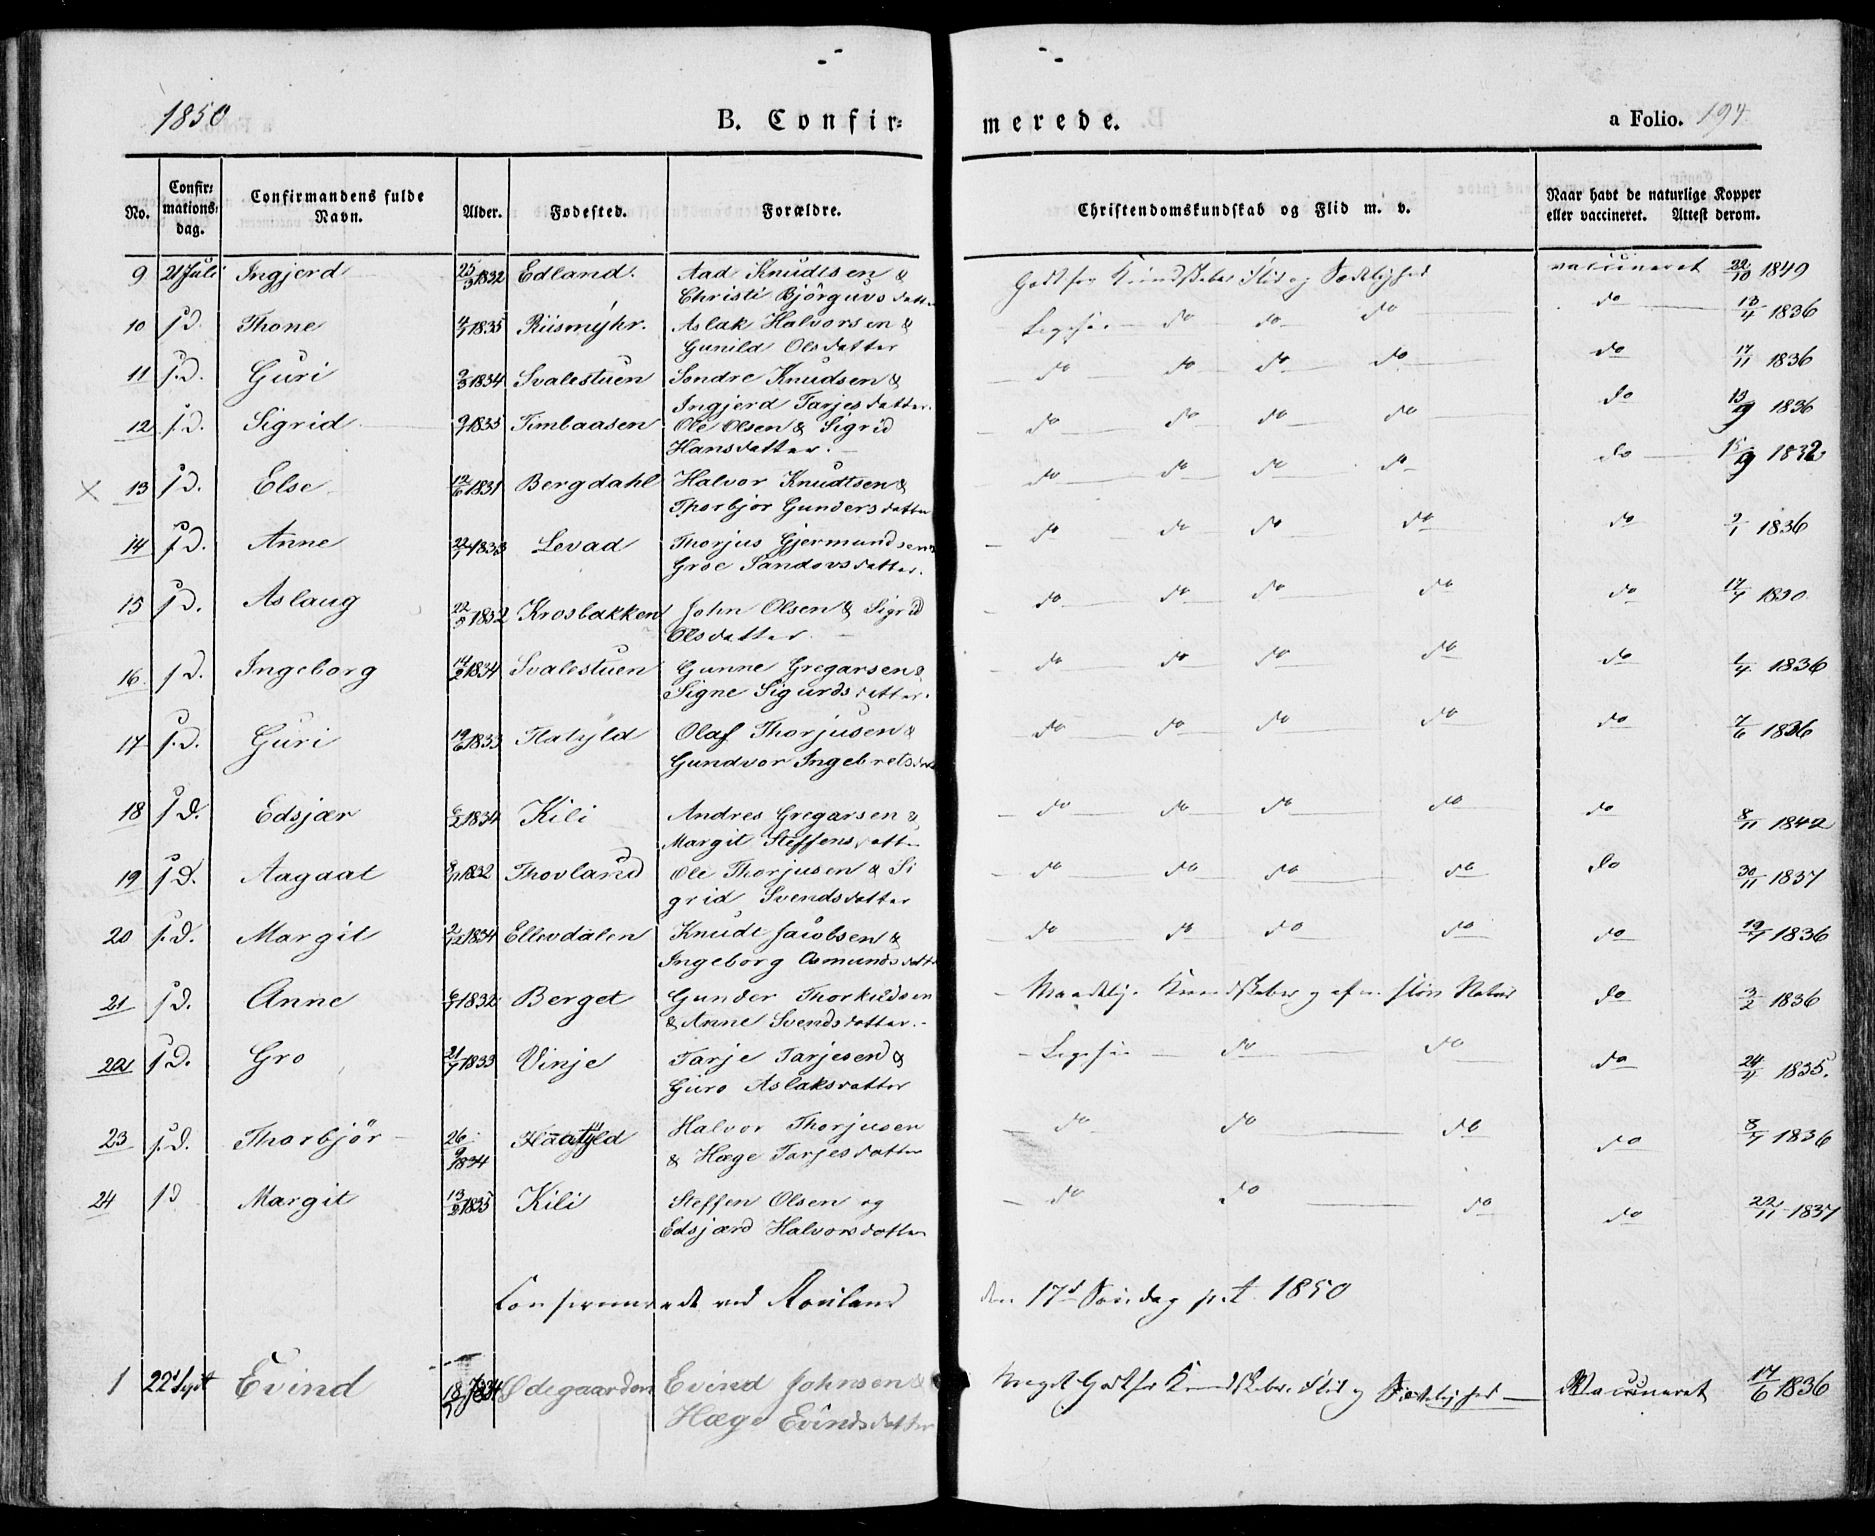 1850
B. Confir=
merede.
a Folio. 194
No.
Confir=
mations=
dag.
Confirmandens fulde
Navn.
Alder.
Fødested.
Forældre.
Christendomskundskab og Flid m. v.
Naar havt de naturlige Kopper
eller vaccineret. Attest derom.
9 21 Juli Ingjerd 25/3 1832 Edland. Aad Knudtsen & Godt for Kundskaber Flid og Sædelighed vaccineret 22/10 1849
Christi Björguvsdatter
10 s. D. Thone 1835 Riismÿhr. Aslak Halvorsen & Ligesaa do do do do 13/4 1836
Gunild Olsdatter
11 s. D. Guri 1834 Svalestuen Sondre Knudsen & do do do do do 17/11 1836
Ingjerd Tarjesdatter.
12 s. D. Sigrid 1835 Timbaasen Ole Olsen & Sigrid do do do do do 13/9 1836
Hansdatter.
× 13 s. D. Else 12/6 1831 Bergdahl Halvor Knudtsen & do do do do do 15/9 1832
Thorbjör Gundersdatter
14 s. D. Anne 22/7 1833 Levad Thorjus Gjermundsen & do do do do do 2/1 1836
Groe Sandovsdatter.
15 s. D. Aslaug 22/3 1832 Krosbakken John Olsen & Sigrid do do do do do 17/7 1830
Olsdatter
16 s. D. Ingeborg 14/2 1834 Svalestuen Gunne Gregarsen & do do do do do 1/4 1836
Signe Sigurdsdatter.
17 s. D. Guri 19/6 1833 Flatÿld Olaf Thorjusen & do do do do do 7/6 1836
Gundvor Ingebretsdat
18 s. D. Edsjær 6/2 1834 Kili Andres Gregarsen & do do do do do 8/11 1842
Margit Steffensdatter
19 s. D. Aagaat 1832 Thovland Ole Thorjusen & Si do do do do do 30/11 1837
grid Svendsdatter
20 s. D. Margit 2/12 1834 Ellevdalen Knudt Jacobsen & do do do do do 19/7 1836
Ingeborg Osmundsdatt
21 s. D. Anne 1832 Berget Gunder Thorkildsen Maadelige Kundskaber og af en sløv Natur do 3/2 1836
& Anne Svendsdatter.
22 s. D. Gro 21/7 1833 Vinje Tarje Tarjesen & Ligesaa do do do 24/4 1835.
Guro Aslaksdatter
23 s. D. Thorbjör 26/9 1834 Flatÿld Halvor Thorjusen do do do do 8/7 1836
& Hæge Tarjesdatter
24 s D Margit 13/2 1835 Kili Steffen Olsen og do do do do 22/11 1837
Edsjærd Halvorsdatter
Confirmerede ved Rouland den 17de Søndag p. t. 1850
1 22d Sept Evind 18/7 1834 Ødegaarden Evind Johnsen & Meget Godt for Kundskaber Flid og Sædelighed Vaccineret 17/6 1836
Hæge Evindsdatter